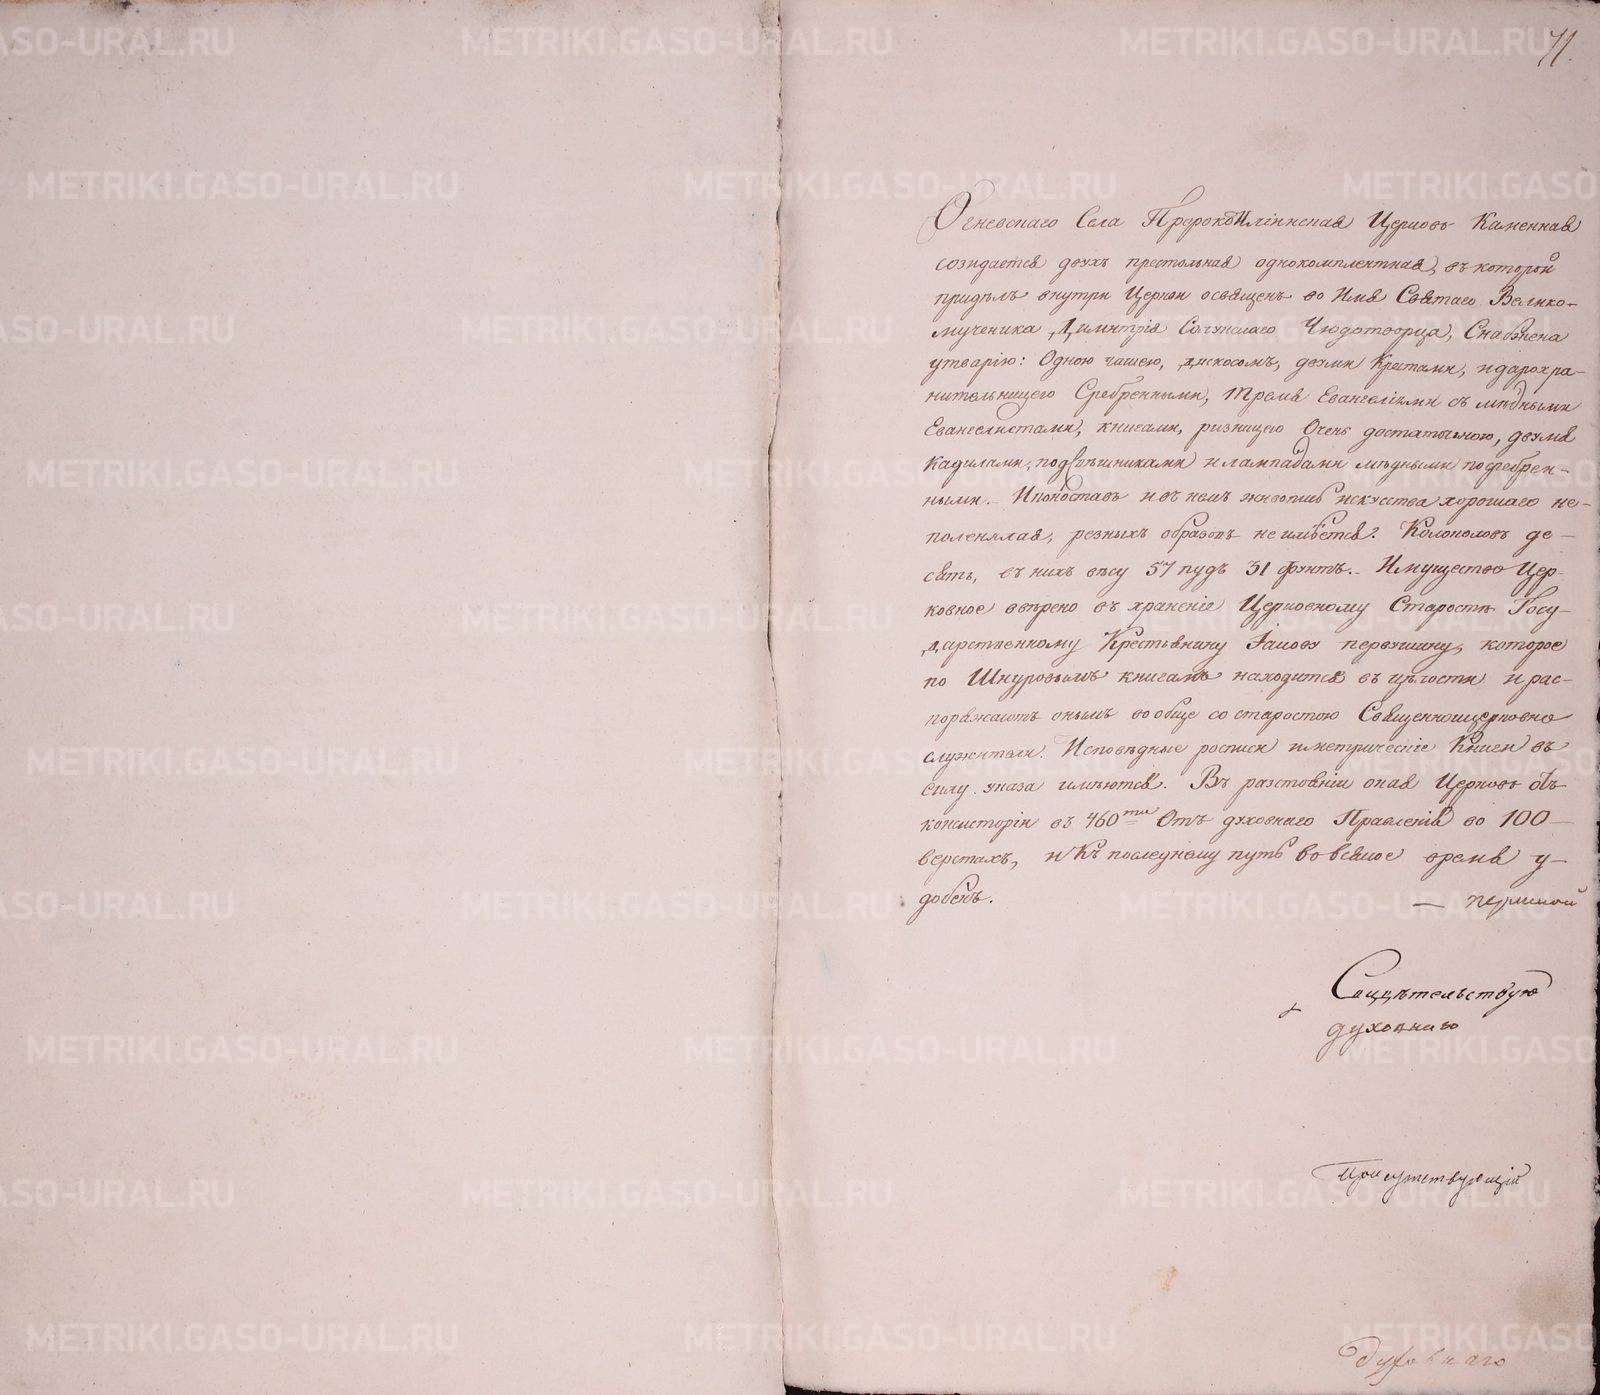 71.
Огневскаго Села Пророкоилiинская Церковь Каменная
созидается двухъ престольная однокомплектная, въ которой
придѣлъ внутри Церкви освященъ во Имя Святаго Велико-
мученика Димитрiя Солунскаго Чюдотворца, Снабжена
утварiю: Одною чашею, дискосомъ, двумя Крестами, и дарохра-
нительницею Сребренными, тремя Евангелiями съ мѣдными
Евангелистами, книгами, ризницею Очень достаточною, двумя
Кадилами, подсвѣшниками и лампадами мѣдными посребрен-
ными. Иконостасъ и въ немъ живопись искусства хорошаго не-
полинялая, резныхъ образовъ не имѣется. Колоколовъ де-
сять, въ нихъ вѣсу 57 пудъ 31 фунтъ. Имущество Цер-
ковное ввѣрено въ храненiе Церковному Старостѣ Госу-
дарственному Крестьянину Iакову первушину, которое
по Шнуровымъ книгамъ находится въ цѣлости и рас-
поряжаютъ онымъ вообще со старостою Священноицерковно
служители. Исповѣдные росписи и метрическiе Книги въ
силу указа имѣются. Въ разстоянiи оная Церковь отъ
консисторiи въ 460ти Отъ духовнаго Правленiя во 100
верстахъ, и Къ последнему путь во всякое время у-
добенъ. — пермской
Свидѣтельствую
духовнаго
Присутствующiй
духовнаго
METRIKI.GASO-URAL.RU